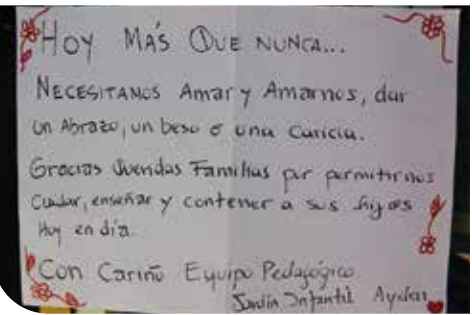 HOY MÁS QUE NUNCA...
NECESITAMOS Amar y Amarnos, dar
un Abrazo, un beso o una Caricia.
Gracias Queridas Familias por permitirnos
Cuidar, enseñar y contener a sus hijos
Hoy en día.
Con Cariño Equipo Pedagógico
Jardín Infantil